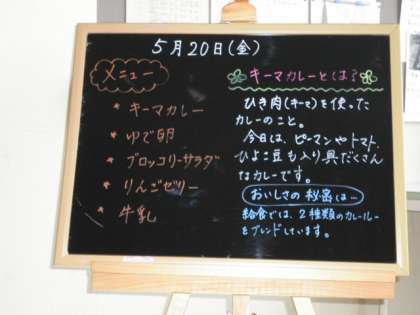 5月20日(金)
メニュー
* キーマカレー
* ゆで卵
* ブロッコリーサラダ
* りんごゼリー
* 牛乳
キーマカレーとは?
ひき肉(キーマ)を使った
カレーのこと。
今日は、ピーマンやトマト、
ひよこ豆も入り具だくさん
なカレーです。
おいしさの秘密は…
給食では、2種類のカレールー
をブレンドしています。